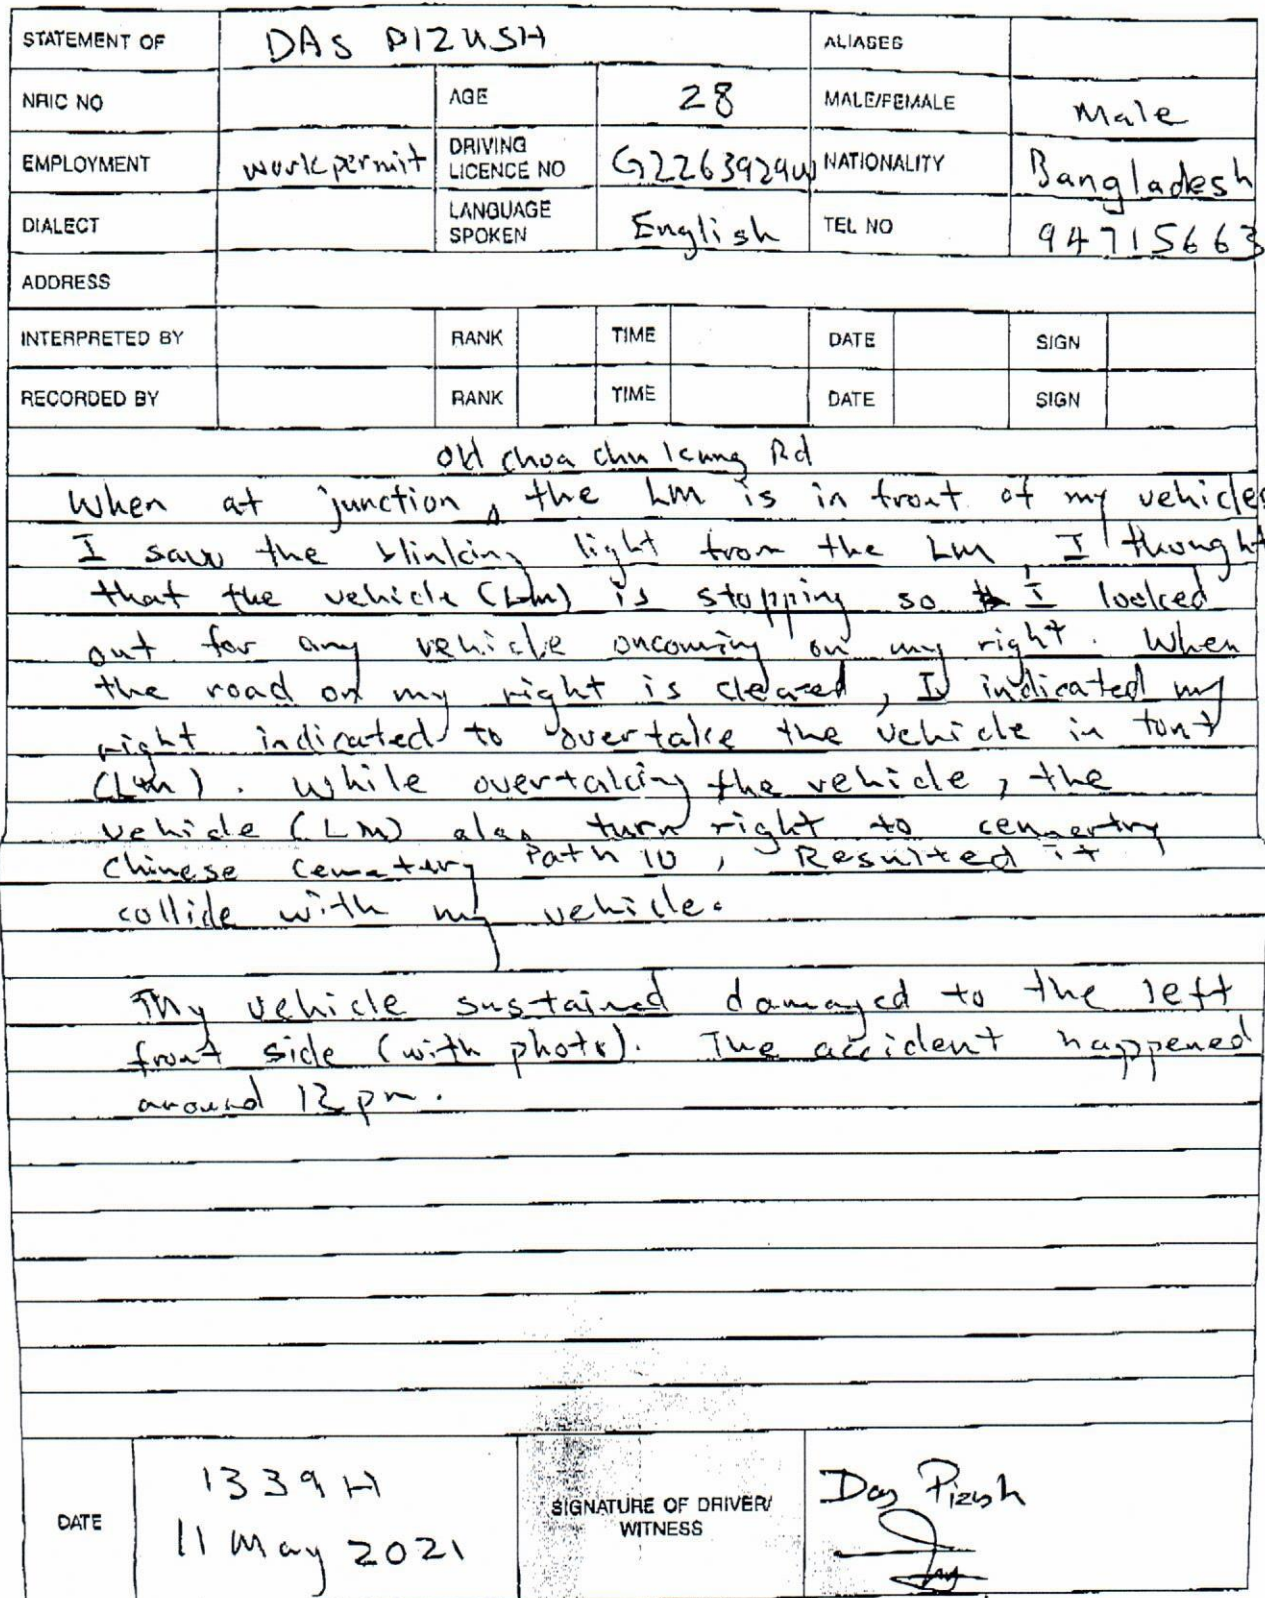 STATEMENT OF DAS PIZUSH ALIASES
NRIC NO AGE 28 MALE/FEMALE Male
EMPLOYMENT work permit DRIVING LICENCE NO G2263929W NATIONALITY Bangladesh
DIALECT LANGUAGE SPOKEN English TEL NO 94715663
ADDRESS
INTERPRETED BY RANK TIME DATE SIGN
RECORDED BY RANK TIME DATE SIGN
Old choa chu kang Rd
When at junction, the LM is in front of my vehicles
I saw the blinking light from the LM, I thought
that the vehicle (LM) is stopping so I looked
out for any vehicle oncoming on my right. When
the road on my right is cleared, I indicated my
right indicated to overtake the vehicle in font
(LM). While overtaking the vehicle, the
vehicle (LM) also turn right to
Chinese Cematery Path 10, Resulted it
collide with my vehicle.
My vehicle sustained damaged to the left
front side (with photo). The accident happened
around 12 pm.
DATE 1339H
11 May 2021
SIGNATURE OF DRIVER/
WITNESS
Das Pizush